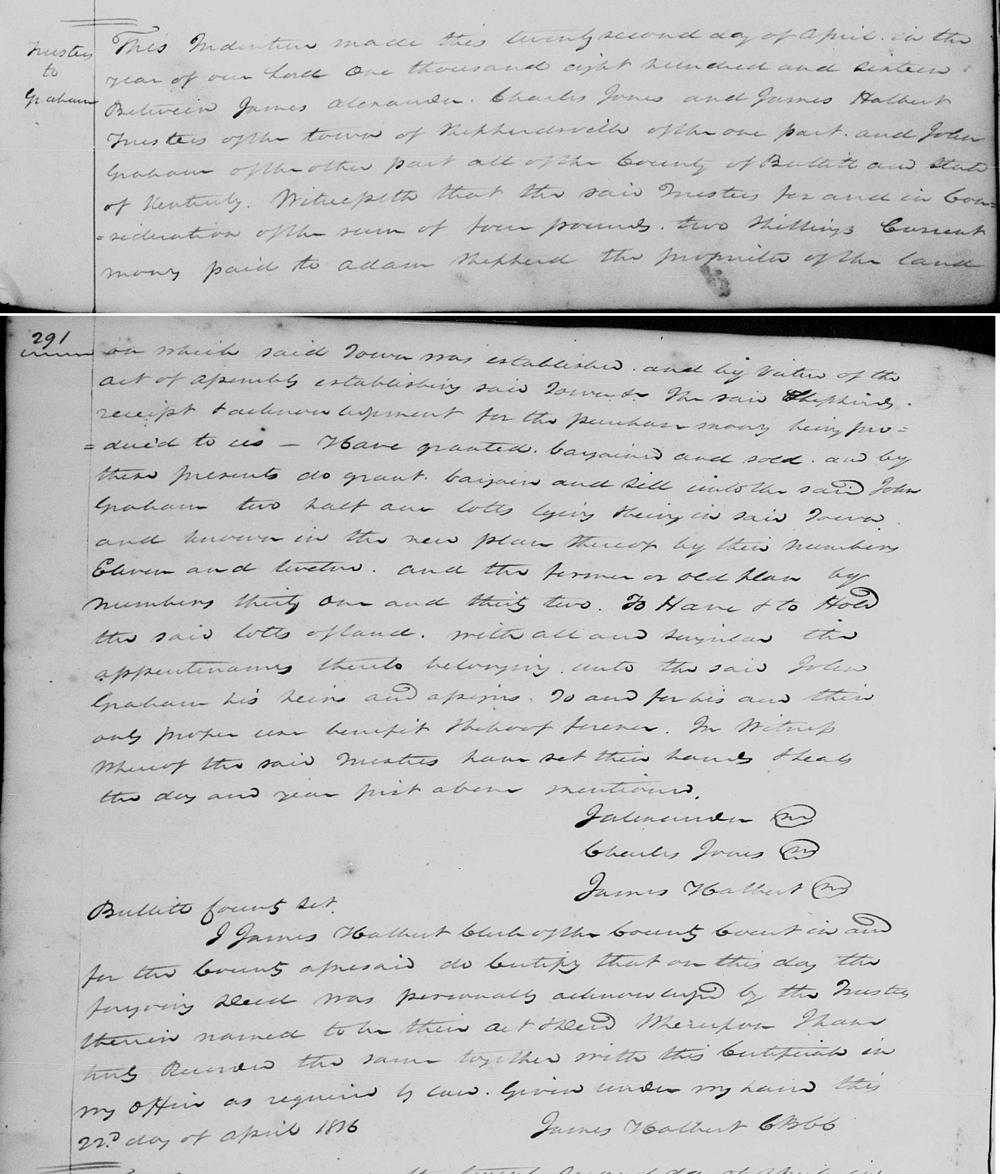 Trustees
to
Graham
This Indenture made this twenty second day of April in the
year of our Lord One thousand eight hundred and sixteen
Between James Alexander. Charles Jones and James Halbert
Trustees of the town of Shepherdsville of the one part. and John
Graham of the other part all of the County of Bullitt and State
of Kentucky. Witnesseth that the said Trustees for and in Con=
=sideration of the sum of four pounds. two Shillings Current
money paid to Adam Shepherd the proprietor of the land
291
on which said Town was established. and by Virtue of the
act of Assembly establishing said Town & the said Shepherds.
receipt & acknowledgment for the purchase money being pro=
=duced to us — Have granted. bargained and sold. and by
these presents do grant. bargain and sell unto the said John
Graham two half acre lotts lying & being in said Town.
and known in the new plan thereof by their numbers
Eleven and twelve. and the former or old plan by
numbers thirty one and thirty two. To Have & to Hold
the said lotts of land. with all and singular the
appurtenances thereto belonging unto the said John
Graham his heirs and assigns. To and for his and their
only proper use benefit & behoof forever. In Witness
Whereof the said Trustees have set their hands & seals
the day and year first above mentioned.
J Alexander
Charles Jones
James Halbert
Bullitt County Sct.
I James Halbert Clerk of the County Court in and
for the County aforesaid do Certify that on this day the
foregoing Deed was personally acknowledged by the Trustees
therein named to be their act & Deed Whereupon I have
truly Recorded the same together with this Certificate in
my office as required by law. Given under my hand this
22d day of April 1816
James Halbert CBCC